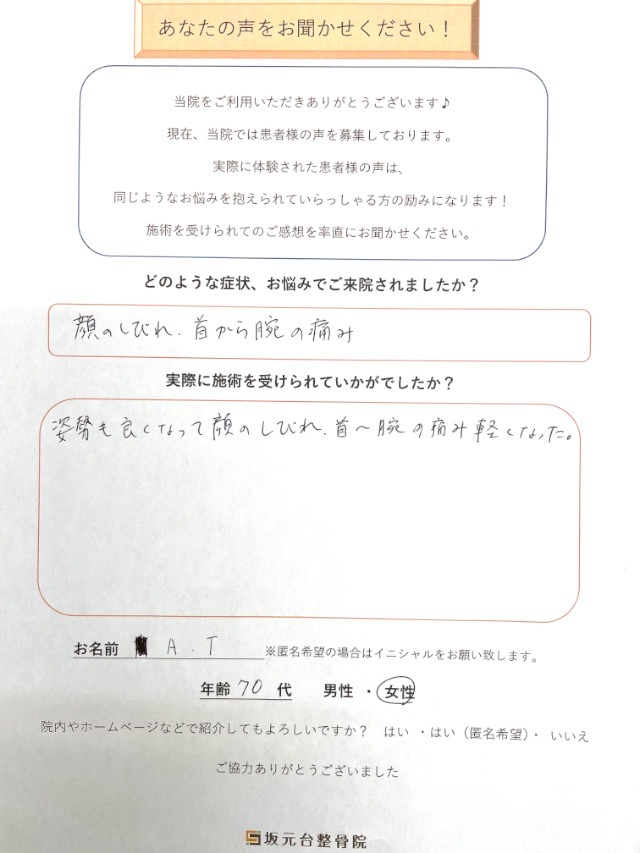 あなたの声をお聞かせください！
当院をご利用いただきありがとうございます♪
現在、当院では患者様の声を募集しております。
実際に体験された患者様の声は、
同じようなお悩みを抱えられていらっしゃる方の励みになります！
施術を受けられてのご感想を率直にお聞かせください。
どのような症状、お悩みでご来院されましたか？
顔のしびれ、首から腕の痛み
実際に施術を受けられていかがでしたか？
姿勢も良くなって顔のしびれ、首〜腕の痛み軽くなった。
お名前 A.T ※匿名希望の場合はイニシャルをお願い致します。
年齢 70 代 男性 ・ 女性
院内やホームページなどで紹介してもよろしいですか？ はい ・はい（匿名希望）・ いいえ
ご協力ありがとうございました
坂元台整骨院